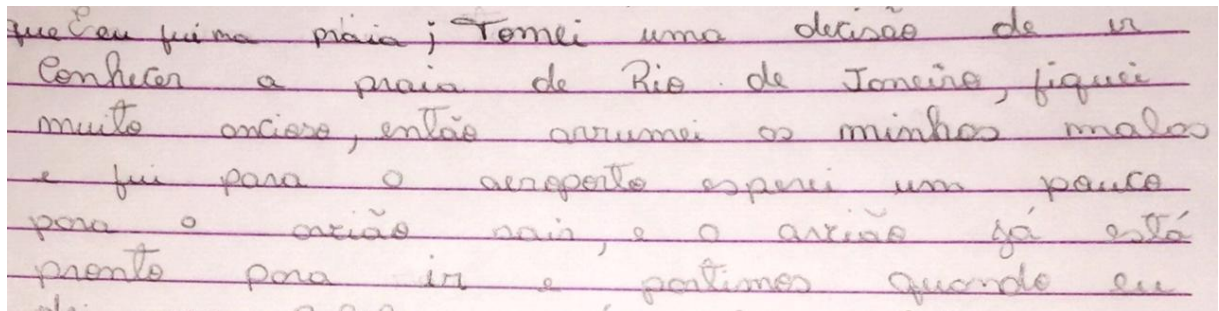 que eu fui na praia; Tomei uma decisão de ir
Conhecer a praia de Rio de Janeiro, fiquei
muito ancioso, então arrumei as minhas malas
e fui para o aeroporto esperei um pouco
para o avião sair, e o avião já está
pronto para ir e partimos quando eu